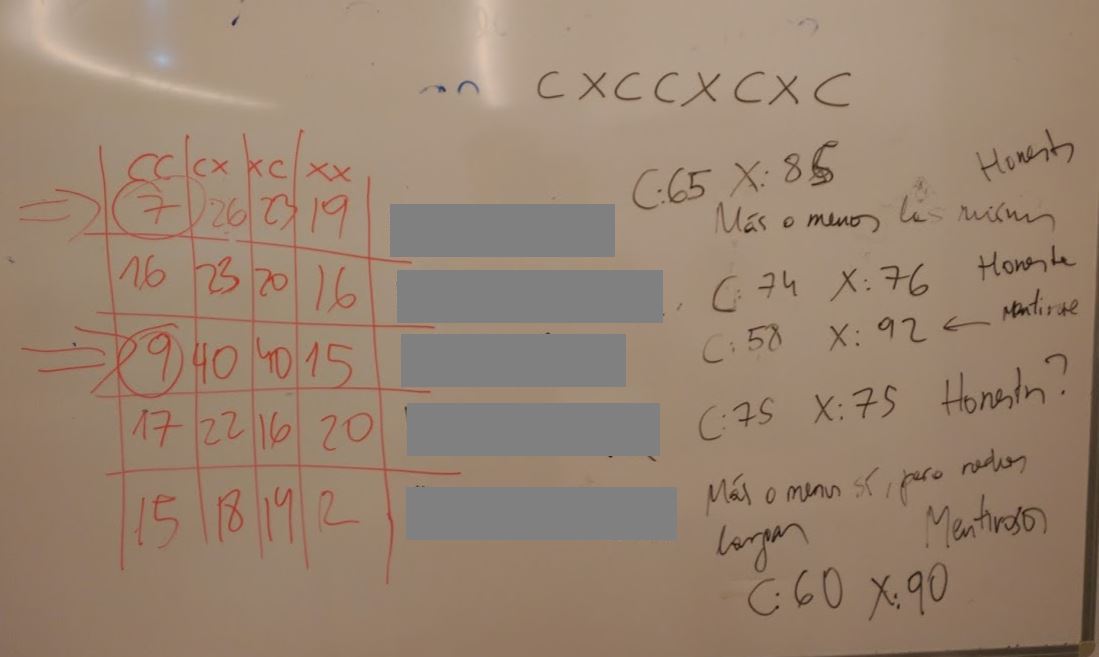 CXCCXCXC
CC CX XC XX
7 26 23 19
16 23 20 16
9 40 40 15
17 22 16 20
15 18 14 2
C:65 X:85 Honests
Más o menos las mismas
C: 74 X: 76 Honeste
C: 58 X: 92 ← Mentirose
C:75 X:75 Honestn?
Más o menos sí, pero
largas Mentirosos
C: 60 X: 90